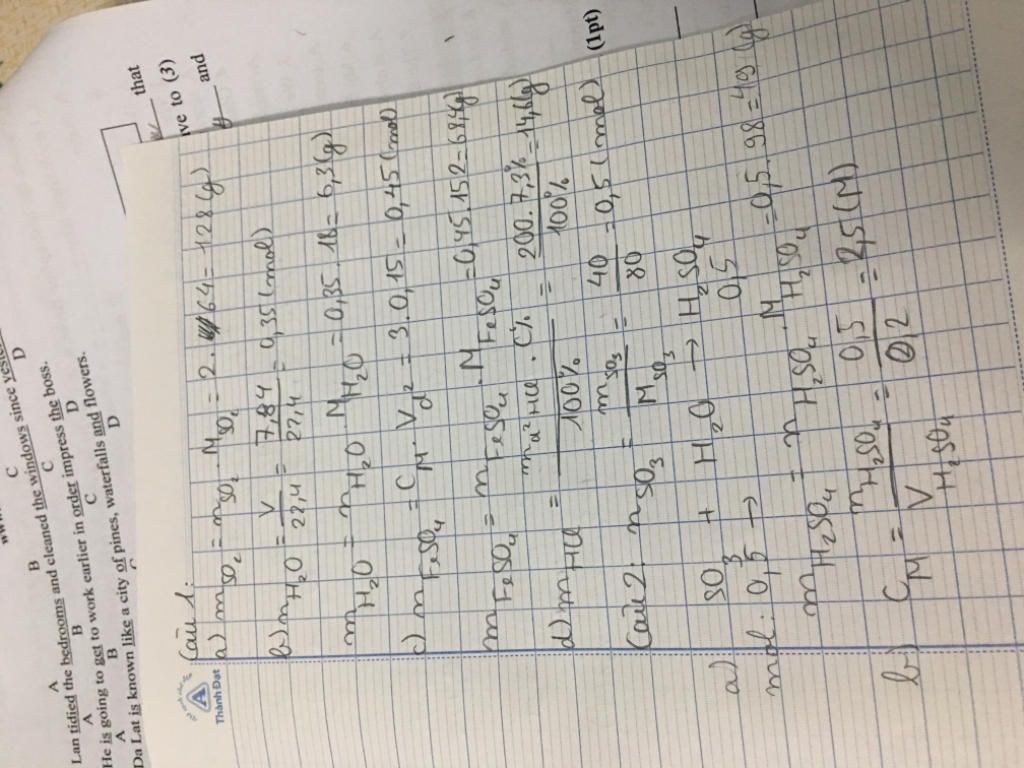 A
Lan tidied the bedrooms and cleaned the windows since yester
B
C
D
A
He is going to get to work earlier in order impress the boss.
B
C
D
A
Da Lat is known like a city of pines, waterfalls and flowers.
B
C
D
that
ve to (3)
and
(1pt)
Thành Đạt
Câu 1:
a) mSO₂ = nSO₂ . MSO₂ = 2 . 64 = 128 (g)
b) nH₂O = V/22,4 = 7,84/22,4 = 0,35 (mol)
mH₂O = nH₂O . MH₂O = 0,35 . 18 = 6,3 (g)
c) nFeSO₄ = CM . Vd² = 3 . 0,15 = 0,45 (mol)
mFeSO₄ = nFeSO₄ . MFeSO₄ = 0,45 . 152 = 68,4 (g)
d) mHCl = md²HCl . C%/100% = 200 . 7,3%/100% = 14,6 (g)
Câu 2: nSO₃ = mSO₃/MSO₃ = 40/80 = 0,5 (mol)
a) SO₃ + H₂O → H₂SO₄
mol: 0,5 → 0,5
mH₂SO₄ = nH₂SO₄ . MH₂SO₄ = 0,5 . 98 = 49 (g)
b) CM = nH₂SO₄/VH₂SO₄ = 0,5/0,2 = 2,5 (M)